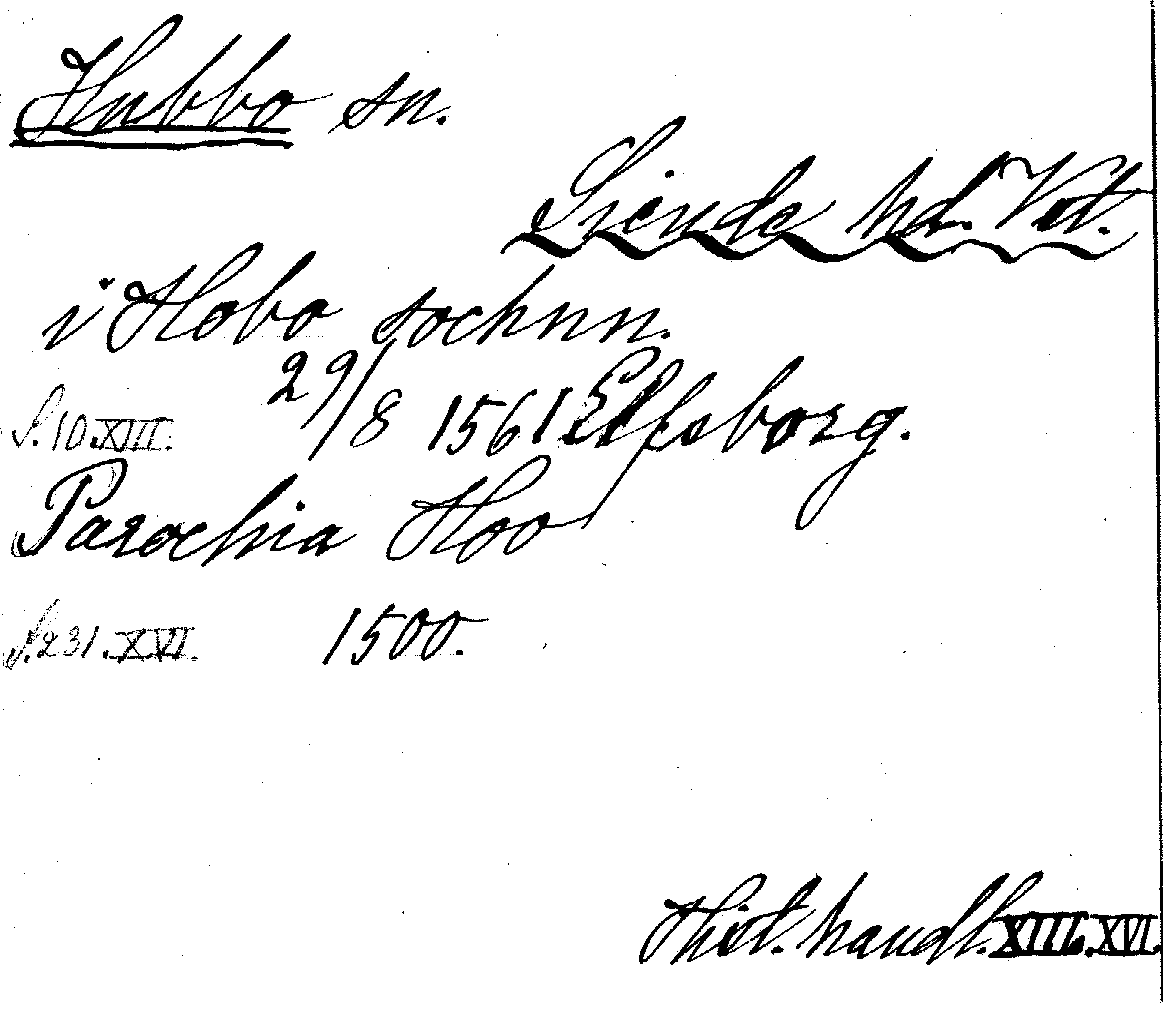 Hubbo sn.
Siende hd. Vstl.
i Hobo sochnn.
S. 10. XIII. 29/8 1561 Elfsborg.
Parochia Hoo
S. 231. XVI. 1500.
Hist. handl. XIII. XVI.